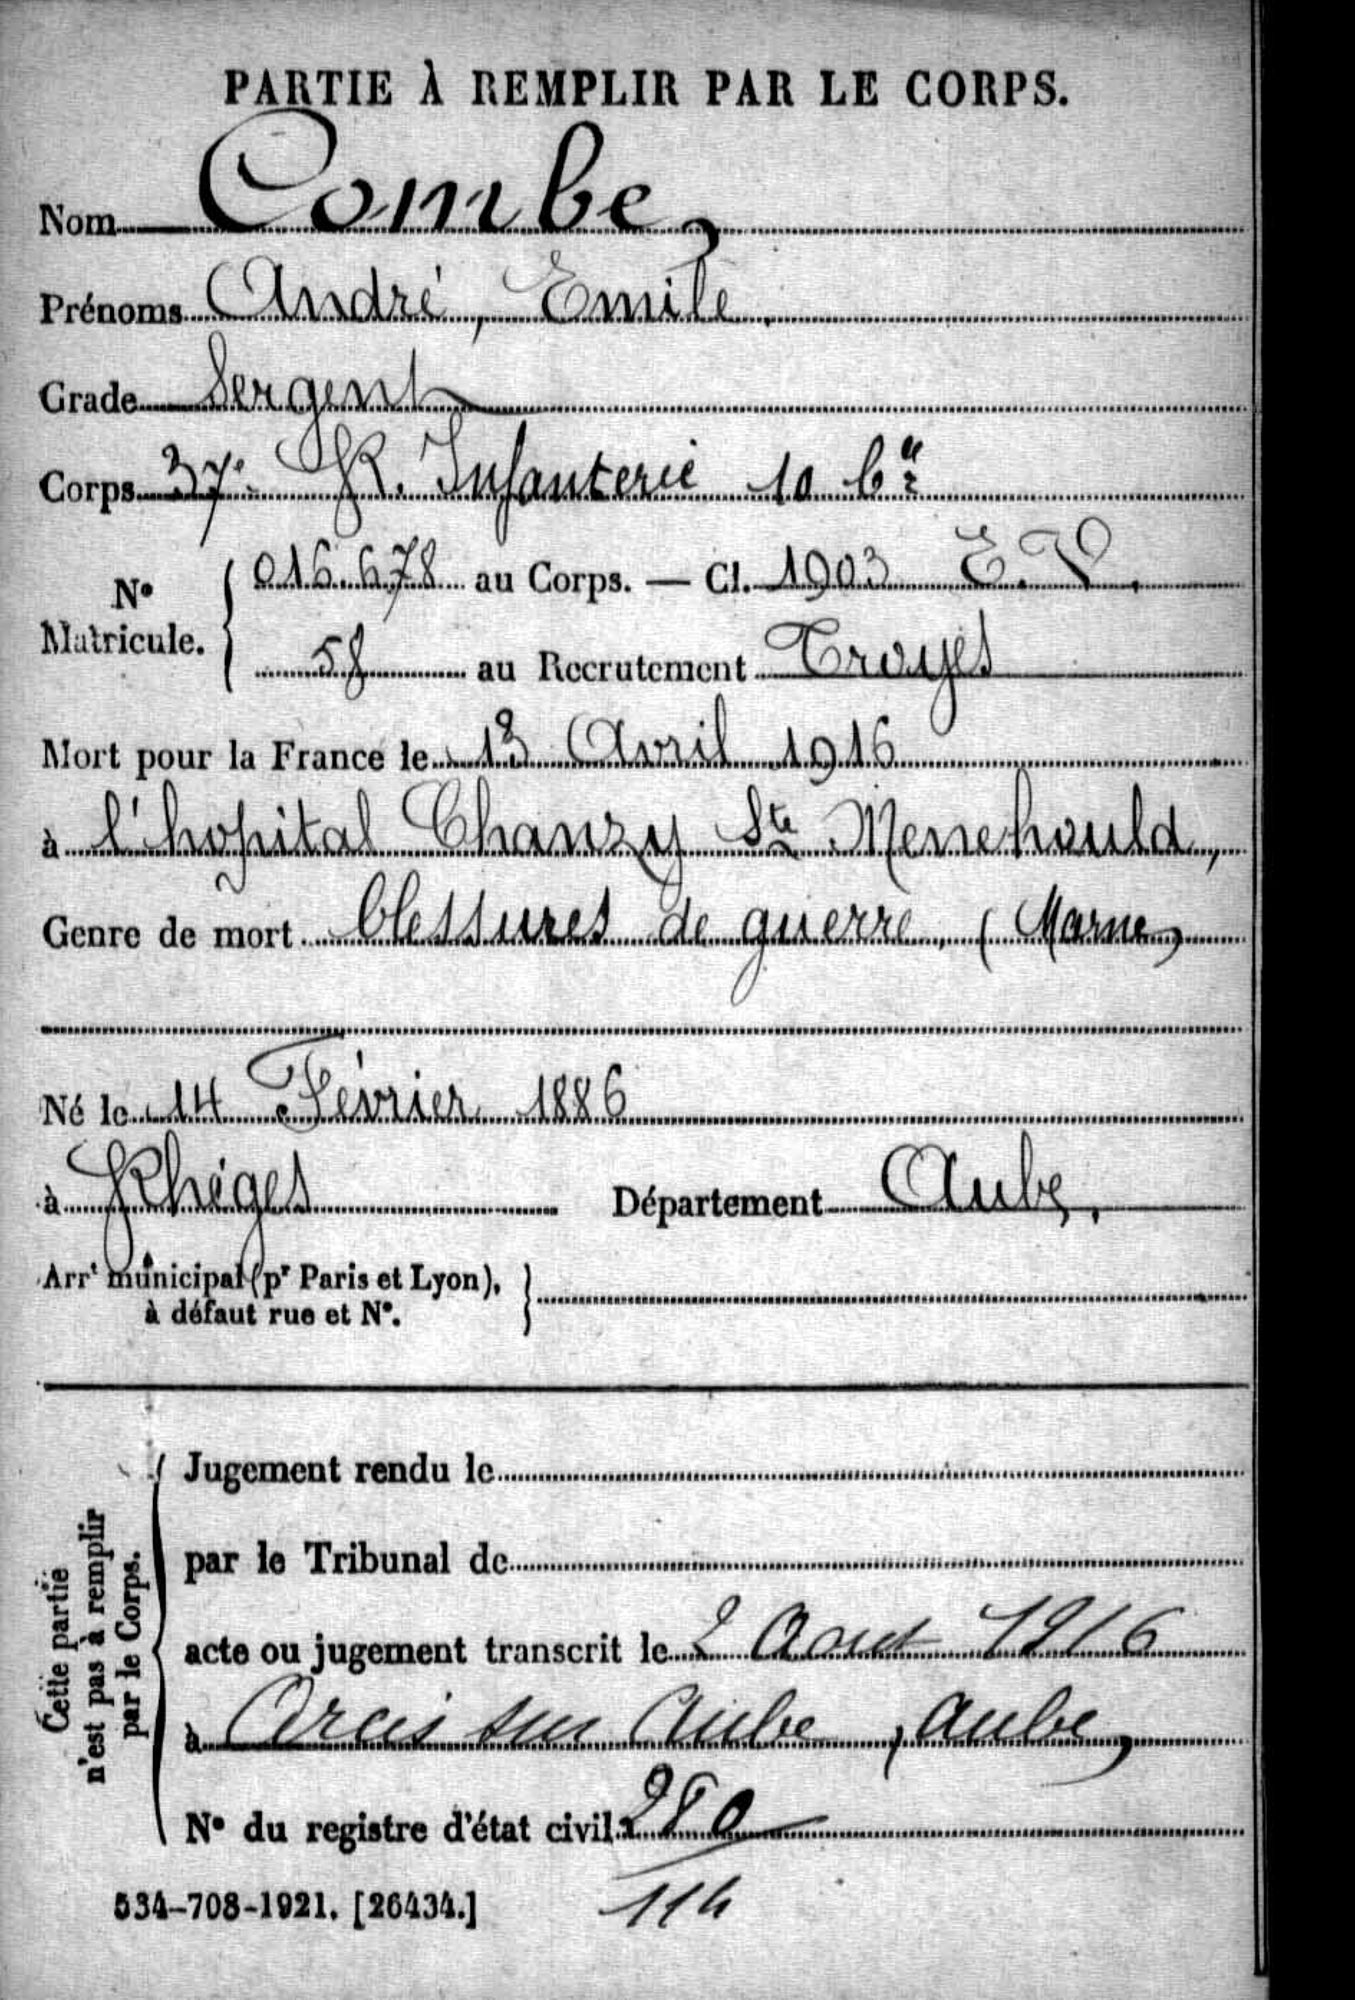 PARTIE À REMPLIR PAR LE CORPS.
Nom Combe
Prénoms André, Emile.
Grade Sergent
Corps 37e R. Infanterie 10 Cie
N° Matricule. { 016.678 au Corps. — Cl. 1903 E.V.
58 au Recrutement Troyes
Mort pour la France le 13 Avril 1916
à l'hopital Chanzy Ste Menehould,
Genre de mort blessures de guerre, (Marne)
Né le 14 Février 1886
à Rhèges Département Aube.
Arrt municipal (pr Paris et Lyon),
à défaut rue et N°.
Cette partie
n'est pas à remplir
par le Corps.
Jugement rendu le
par le Tribunal de
acte ou jugement transcrit le 2 Aout 1916
à Arcis sur Aube, Aube,
N° du registre d'état civil 280
114
534-708-1921. [26434.]